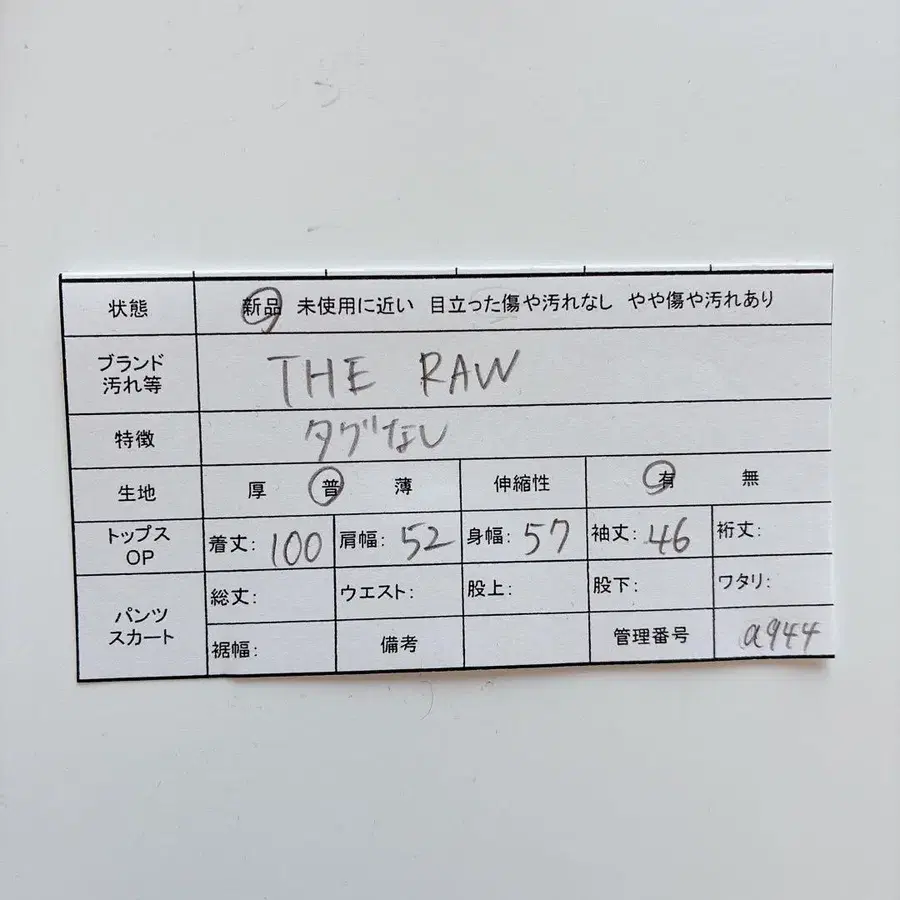 状態 新品 未使用に近い 目立った傷や汚れなし やや傷や汚れあり
ブランド
汚れ等
THE RAW
特徴 タグなし
生地 厚 普 薄 伸縮性 有 無
トップス
OP
着丈: 100 肩幅: 52 身幅: 57 袖丈: 46 裄丈:
パンツ
スカート
総丈: ウエスト: 股上: 股下: ワタリ:
裾幅: 備考 管理番号 a944